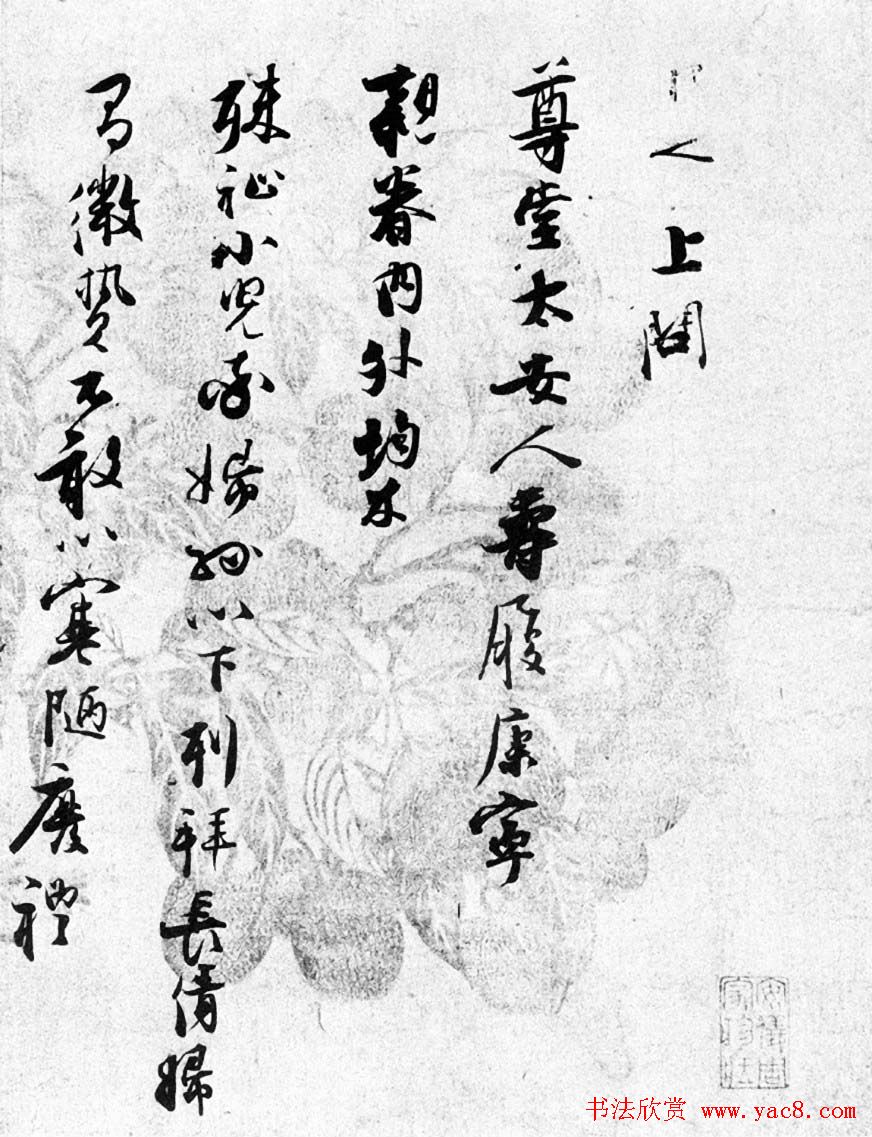 人上问
尊堂太安人尊履康寧
親眷內外均休
殊祉小兒婦孫以下列拜長倩婦
有微贄不敢以寒陋廢禮
书法欣赏 www.yac8.com